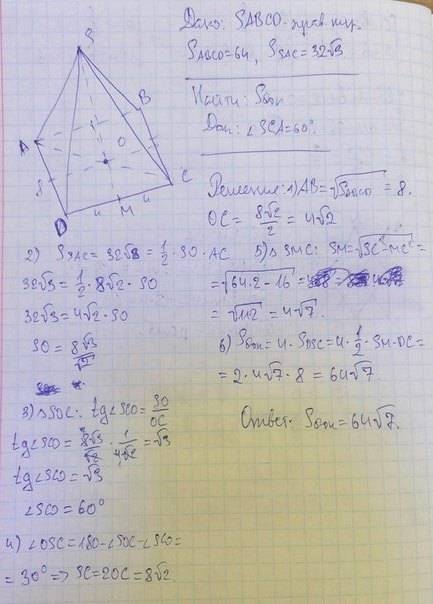 Дано: SABCD - прав. пир.
S_ABCD = 64, S_SAC = 32√3
Найти: S_бок
Док: ∠SCA = 60°.
S
B
A
O
C
8
D
4
M
4
Решение: 1) AB = √S_ABCD = 8.
OC = 8√2/2 = 4√2
2) S_SAC = 32√3 = 1/2 · SO · AC
32√3 = 1/2 · 8√2 · SO
32√3 = 4√2 · SO
SO = 8√3/√2
3) △SOC: tg∠SCO = SO/OC
tg∠SCO = 8√3/√2 · 1/4√2 = √3
tg∠SCO = √3
∠SCO = 60°
4) ∠OSC = 180 - ∠SOC - ∠SCO =
= 30° => SC = 2OC = 8√2.
5) △SMC: SM = √SC² - MC² =
= √64·2 - 16 =
= √112 = 4√7.
6) S_бок = 4 · S_DSC = 4 · 1/2 · SM · DC =
= 2 · 4√7 · 8 = 64√7.
Ответ: S_бок = 64√7.